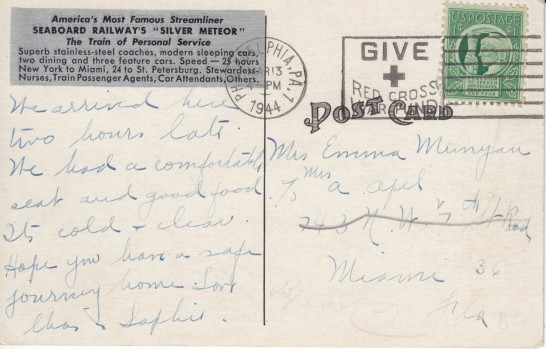 America's Most Famous Streamliner
SEABOARD RAILWAY'S "SILVER METEOR"
The Train of Personal Service
Superb stainless-steel coaches, modern sleeping cars,
two dining and three feature cars. Speed — 25 hours
New York to Miami, 24 to St. Petersburg. Stewardess-
Nurses, Train Passenger Agents, Car Attendants, Others.
We arrived here
two hours late
We had a comfortable
seat and good food
Its cold + clear.
Hope you have a safe
journey home Love
Chas + Sophie.
PHILADELPHIA, PA. 1
1944
GIVE
RED CROSS
WAR FUND
US POSTAGE
POST CARD
Mrs Emma Munyan
% Mrs a apel
243 N. W. 7th St Road
Miami 36
Fla